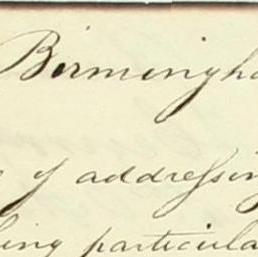 Birmingha
of addreſsing
ing particula